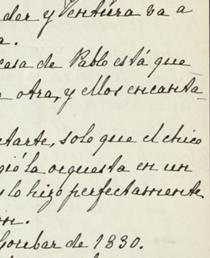 der y Ventura va a
a.
casa de Pablo está que
otra, y ellos encanta-
tarte, solo que el chico
gió la orquesta en un
lo hizo perfectamente
on.
de 1830.